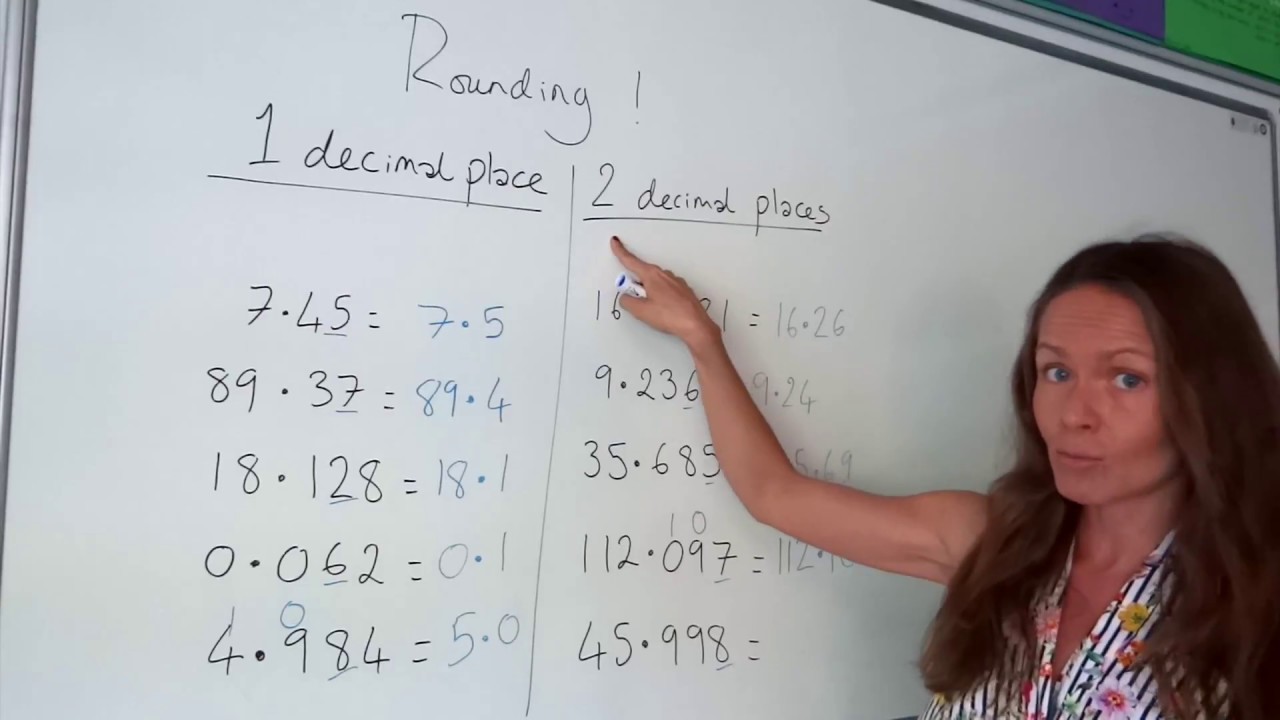 Rounding !
1 decimal place
7.45 = 7.5
89.37 = 89.4
18.128 = 18.1
0.062 = 0.1
1 0
4.984 = 5.0
2 decimal places
16 21 = 16.26
9.236 9.24
35.685 5.69
1 0
112.097 = 112.1
45.998 =